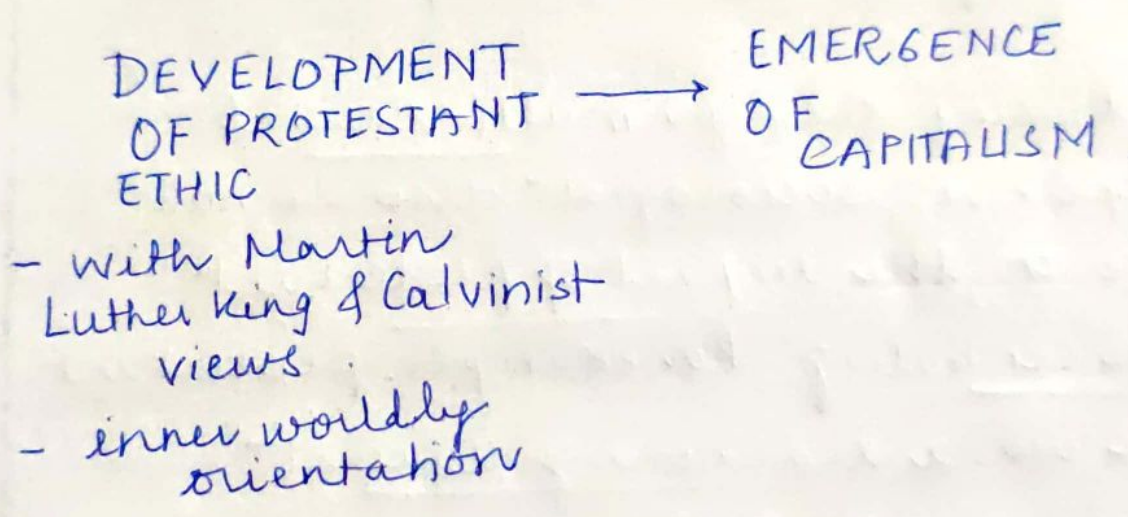 DEVELOPMENT
OF PROTESTANT
ETHIC
→
EMERGENCE
OF
CAPITALISM
- with Martin
Luther King & Calvinist
views.
- inner worldly
orientation